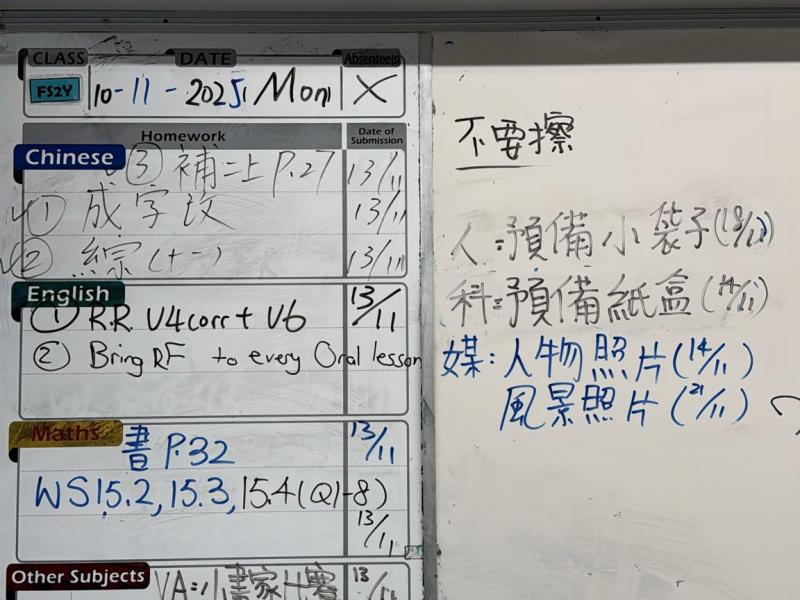 CLASS DATE Absentee(s)
FS2Y 10-11-2025 Mon X
Homework Date of Submission
Chinese
③ 補二上 P.27 13/11
① 成字改 13/11
② 綜(十一) 13/11
English
① R.R. U4corr + U6 13/11
② Bring RF to every Oral lesson
Maths
書 P.32 13/11
WS15.2, 15.3, 15.4(Q1-8)
13/11
Other Subjects
VA:小畫家比賽 13/11
不要擦
人:預備小袋子
科:預備紙盒(14/11)
媒:人物照片(14/11)
風景照片(21/11)